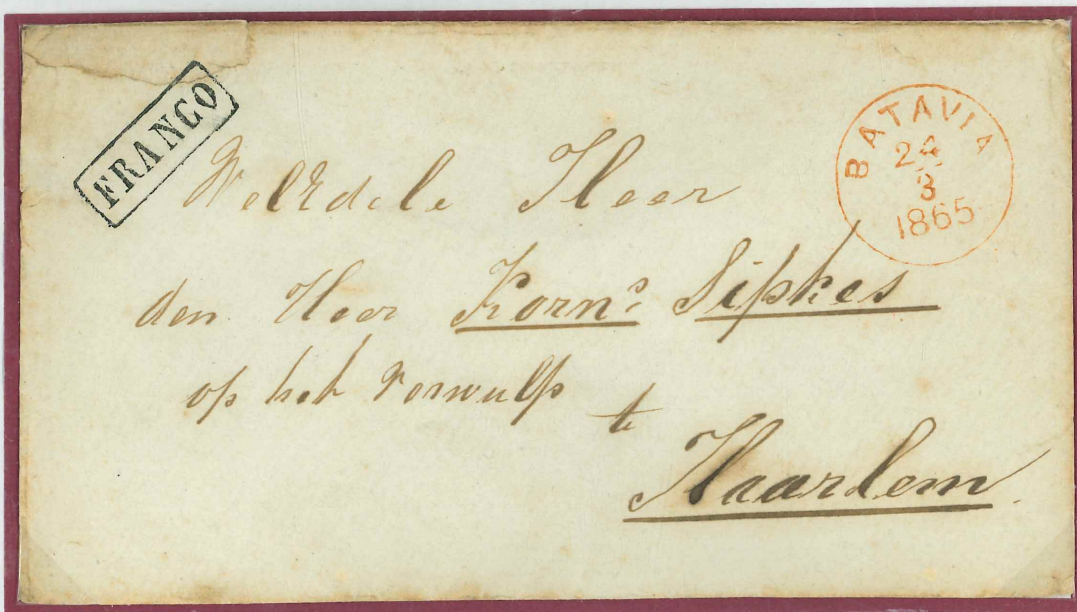 FRANCO
BATAVIA
24
3
1865
WelEdele Heer
den Heer Korns Sipkes
op het Verwulp
te
Haarlem.